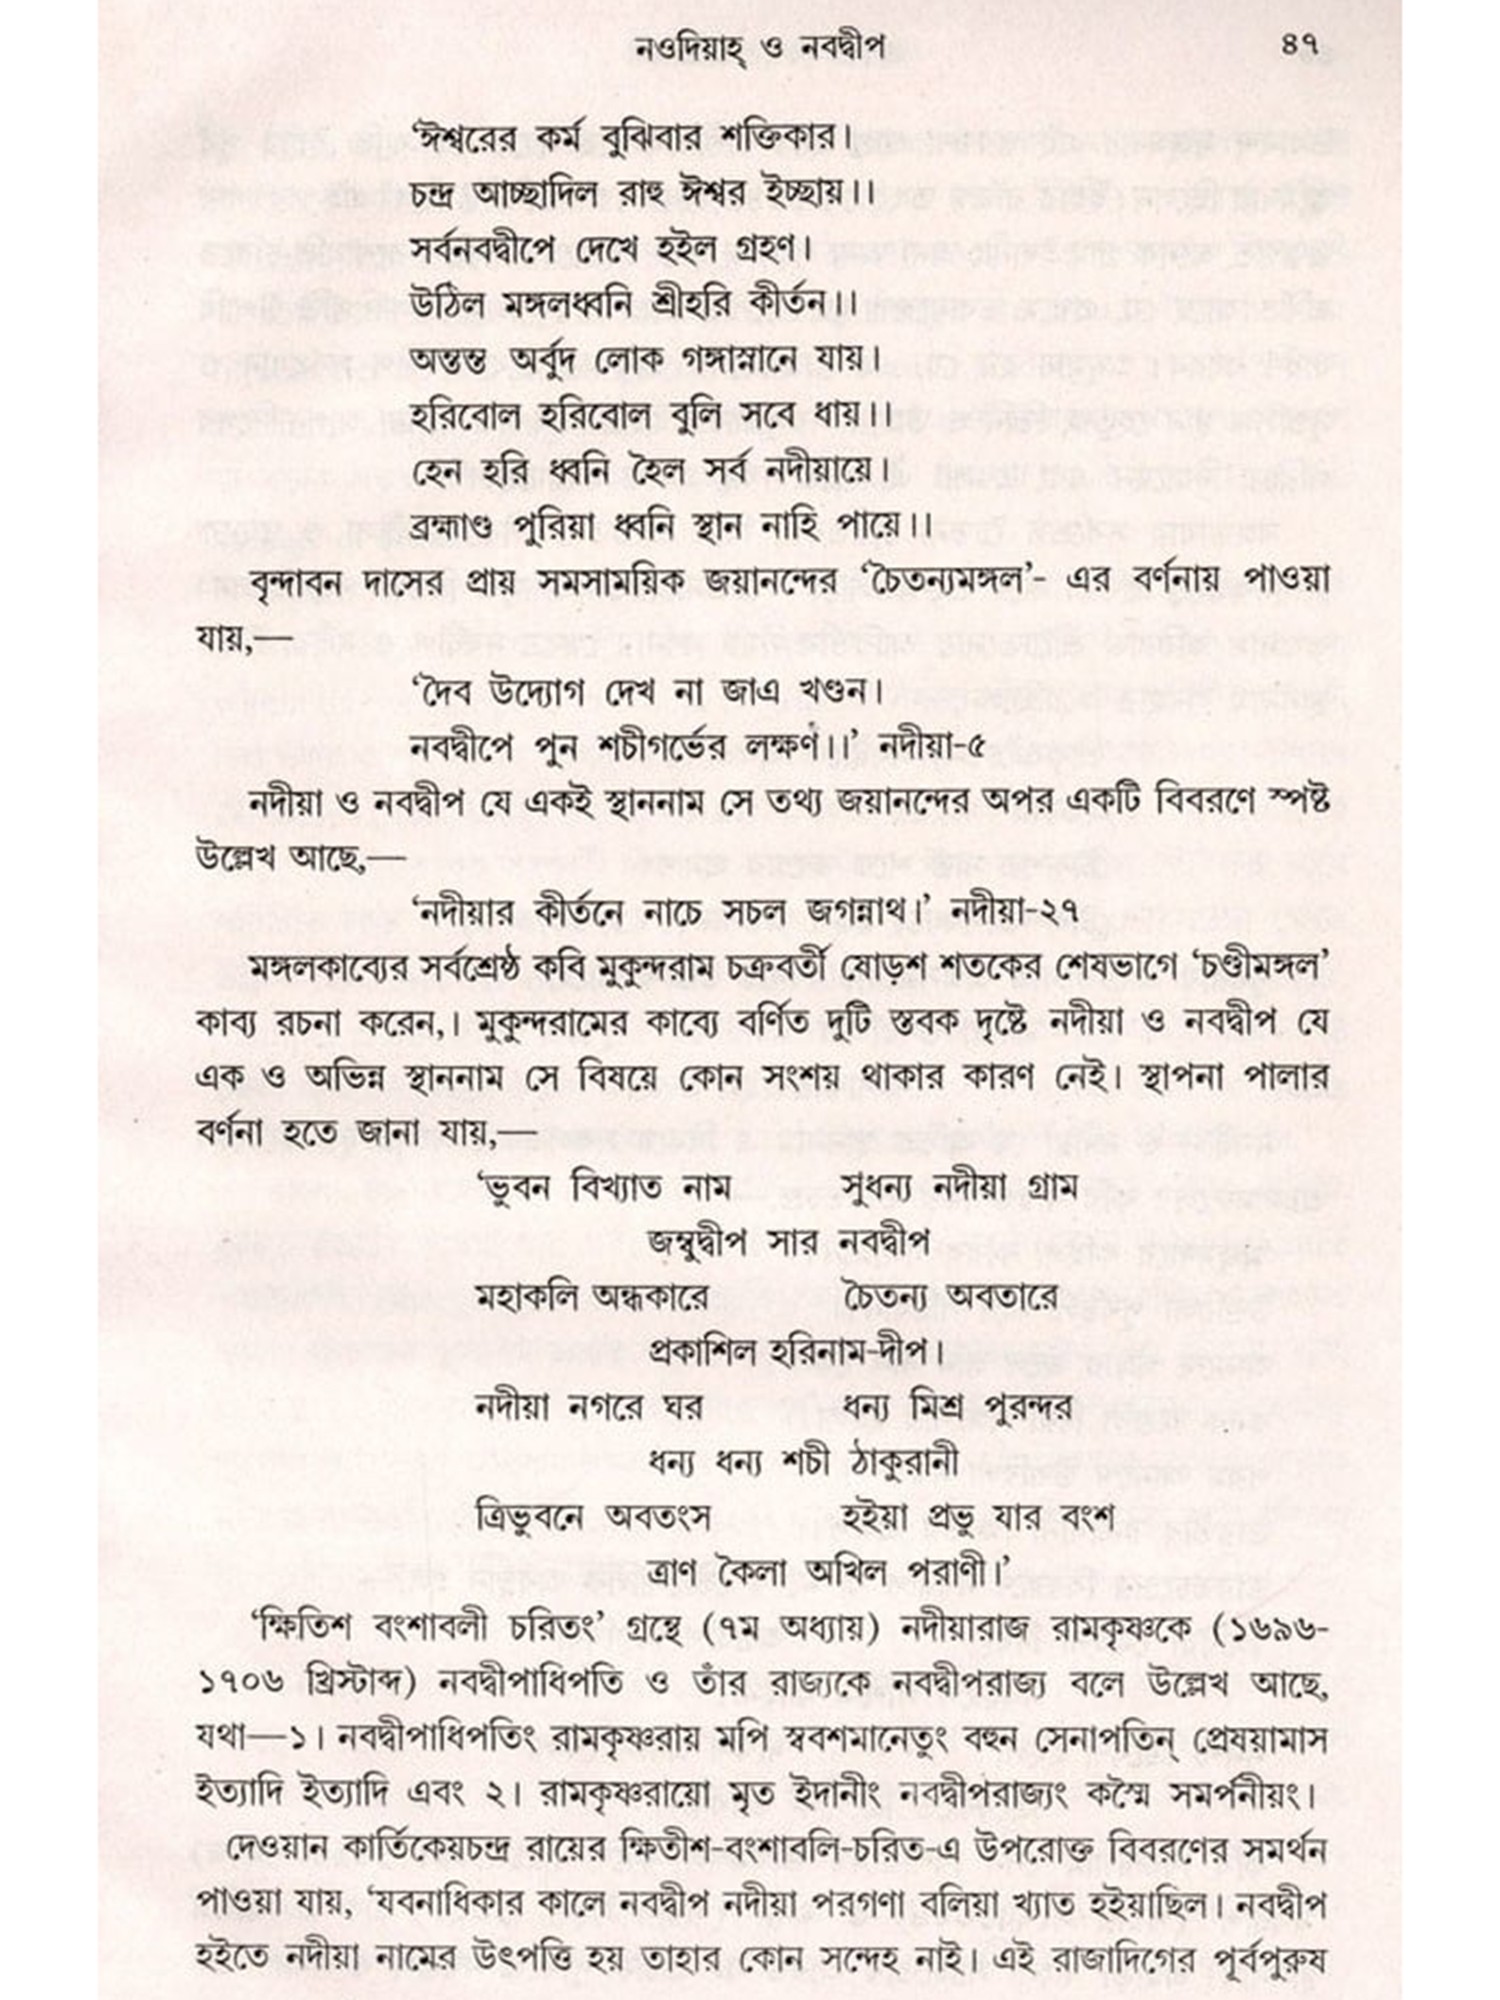 নওদিয়াহ্ ও নবদ্বীপ ৪৭
‘ঈশ্বরের কর্ম বুঝিবার শক্তিকার।
চন্দ্র আচ্ছাদিল রাহু ঈশ্বর ইচ্ছায়।।
সর্বনবদ্বীপে দেখে হইল গ্রহণ।
উঠিল মঙ্গলধ্বনি শ্রীহরি কীর্তন।।
অন্তন্ত অর্বুদ লোক গঙ্গাস্নানে যায়।
হরিবোল হরিবোল বুলি সবে ধায়।।
হেন হরি ধ্বনি হৈল সর্ব নদীয়ায়ে।
ব্রহ্মাণ্ড পুরিয়া ধ্বনি স্থান নাহি পায়ে।।
বৃন্দাবন দাসের প্রায় সমসাময়িক জয়ানন্দের ‘চৈতন্যমঙ্গল’- এর বর্ণনায় পাওয়া
যায়,—
‘দৈব উদ্যোগ দেখ না জাএ খণ্ডন।
নবদ্বীপে পুন শচীগর্ভের লক্ষণ।।’ নদীয়া-৫
নদীয়া ও নবদ্বীপ যে একই স্থাননাম সে তথ্য জয়ানন্দের অপর একটি বিবরণে স্পষ্ট
উল্লেখ আছে,—
‘নদীয়ার কীর্তনে নাচে সচল জগন্নাথ।’ নদীয়া-২৭
মঙ্গলকাব্যের সর্বশ্রেষ্ঠ কবি মুকুন্দরাম চক্রবর্তী ষোড়শ শতকের শেষভাগে ‘চণ্ডীমঙ্গল’
কাব্য রচনা করেন,। মুকুন্দরামের কাব্যে বর্ণিত দুটি স্তবক দৃষ্টে নদীয়া ও নবদ্বীপ যে
এক ও অভিন্ন স্থাননাম সে বিষয়ে কোন সংশয় থাকার কারণ নেই। স্থাপনা পালার
বর্ণনা হতে জানা যায়,—
‘ভুবন বিখ্যাত নাম সুধন্য নদীয়া গ্রাম
জম্বুদ্বীপ সার নবদ্বীপ
মহাকলি অন্ধকারে চৈতন্য অবতারে
প্রকাশিল হরিনাম-দীপ।
নদীয়া নগরে ঘর ধন্য মিশ্র পুরন্দর
ধন্য ধন্য শচী ঠাকুরানী
ত্রিভুবনে অবতংস হইয়া প্রভু যার বংশ
ত্রাণ কৈলা অখিল পরাণী।’
‘ক্ষিতিশ বংশাবলী চরিতং’ গ্রন্থে (৭ম অধ্যায়) নদীয়ারাজ রামকৃষ্ণকে (১৬৯৬-
১৭০৬ খ্রিস্টাব্দ) নবদ্বীপাধিপতি ও তাঁর রাজ্যকে নবদ্বীপরাজ্য বলে উল্লেখ আছে,
যথা—১। নবদ্বীপাধিপতিং রামকৃষ্ণরায় মপি স্ববশমানেতুং বহুন সেনাপতিন্ প্রেষয়ামাস
ইত্যাদি ইত্যাদি এবং ২। রামকৃষ্ণরায়ো মৃত ইদানীং নবদ্বীপরাজ্যং কস্মৈ সমর্পনীয়ং।
দেওয়ান কার্তিকেয়চন্দ্র রায়ের ক্ষিতীশ-বংশাবলি-চরিত-এ উপরোক্ত বিবরণের সমর্থন
পাওয়া যায়, ‘যবনাধিকার কালে নবদ্বীপ নদীয়া পরগণা বলিয়া খ্যাত হইয়াছিল। নবদ্বীপ
হইতে নদীয়া নামের উৎপত্তি হয় তাহার কোন সন্দেহ নাই। এই রাজাদিগের পূর্বপুরুষ